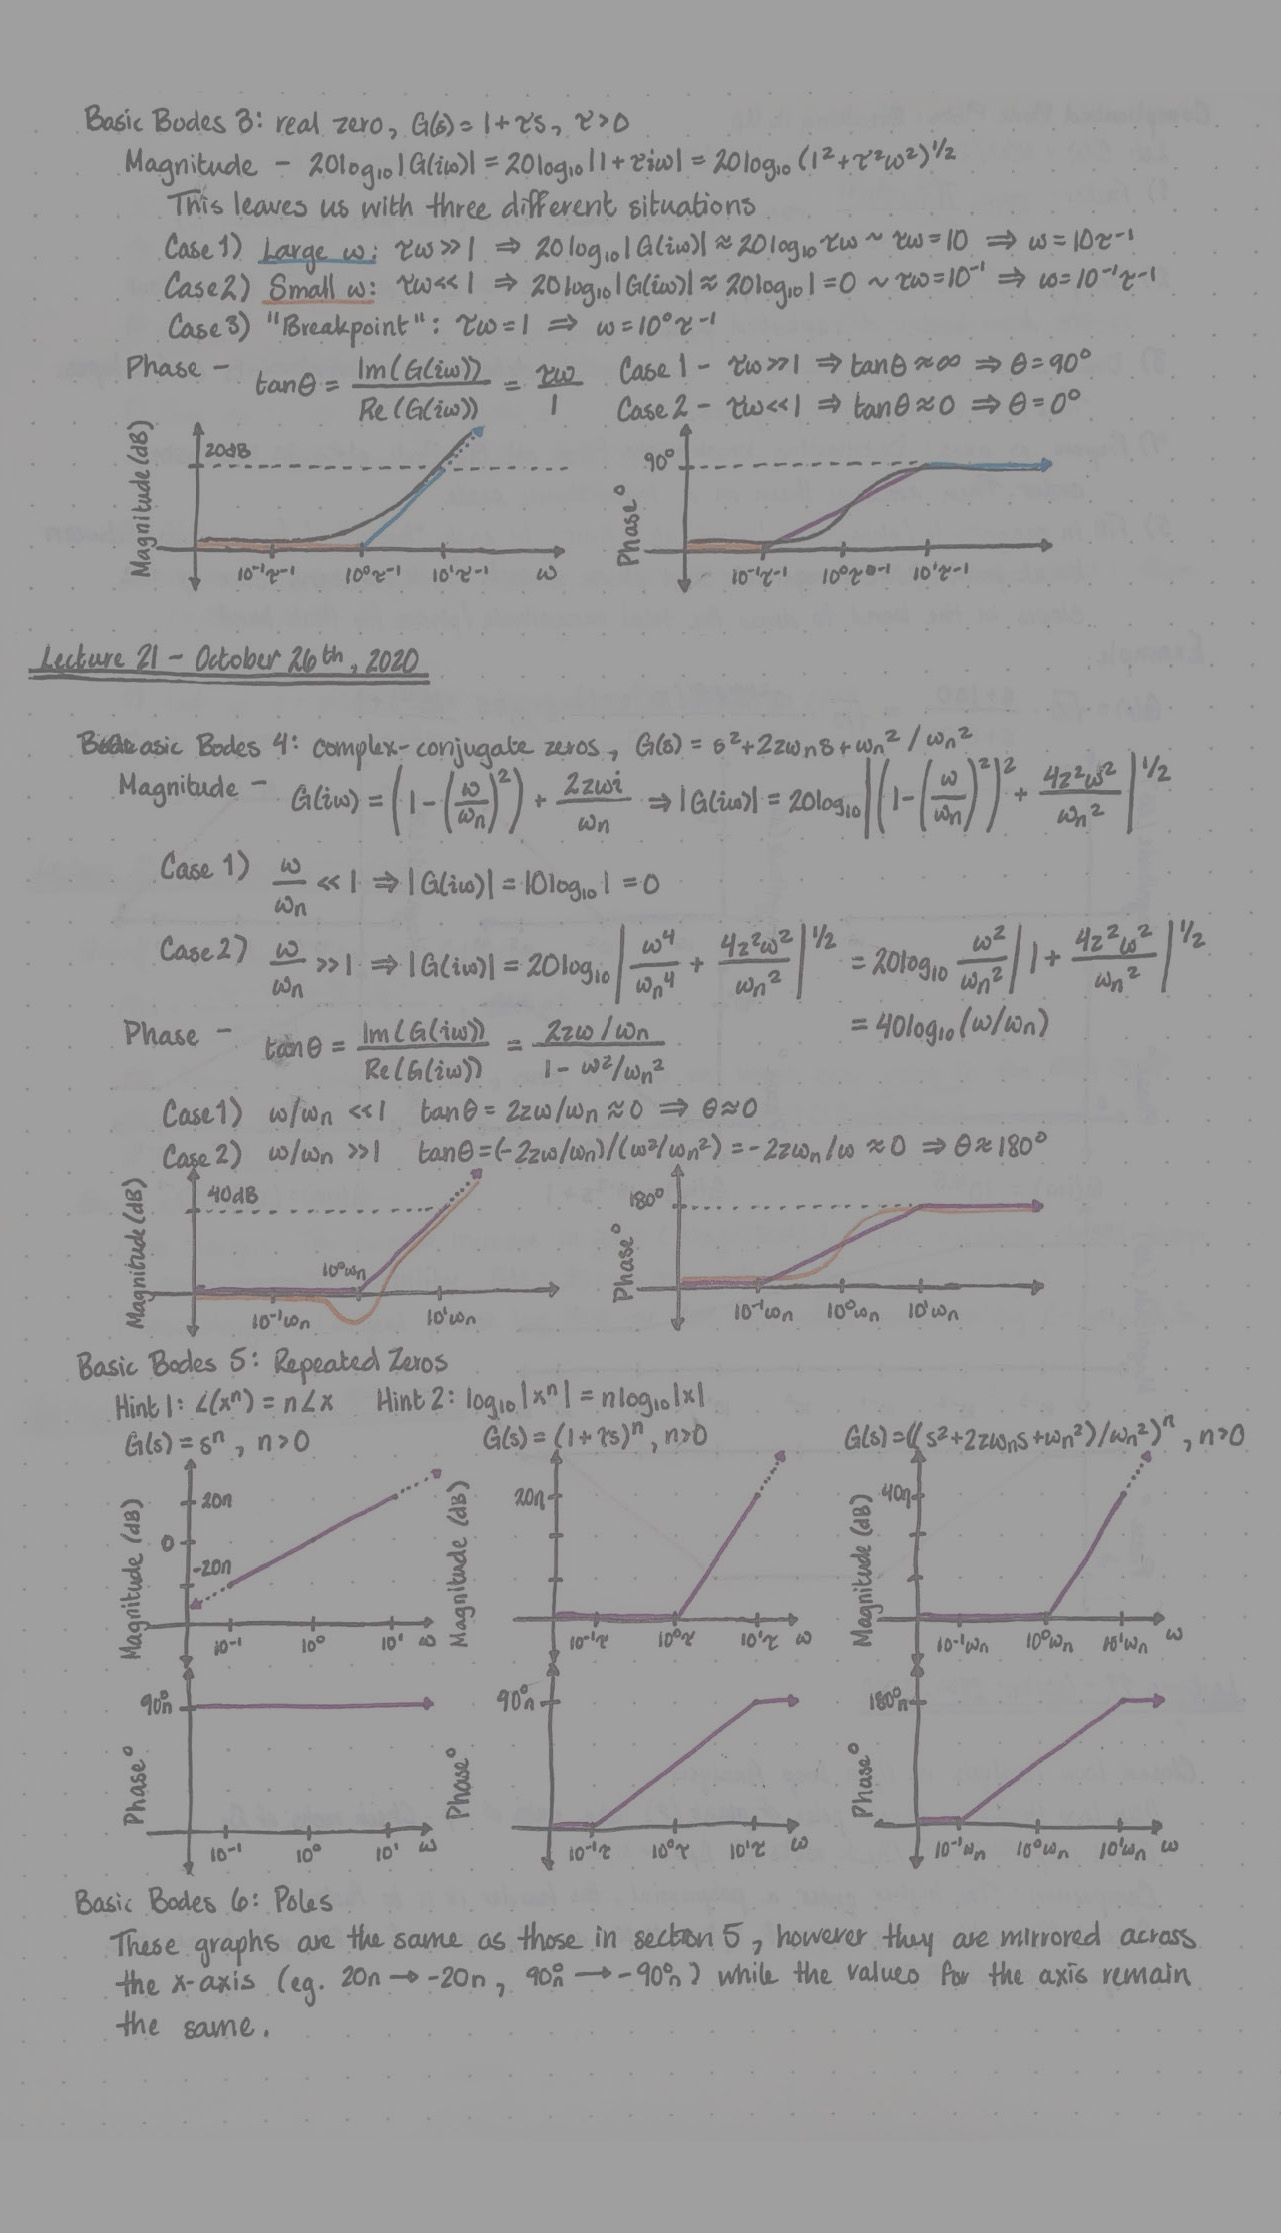 Basic Bodes 3: real zero, G(s) = 1 + τs, τ > 0
Magnitude - 20log₁₀|G(iω)| = 20log₁₀|1+τiω| = 20log₁₀(1²+τ²ω²)^1/2
This leaves us with three different situations
Case 1) Large ω: τω >> 1 ⇒ 20log₁₀|G(iω)| ≈ 20log₁₀τω ~ τω = 10 ⇒ ω = 10τ⁻¹
Case 2) Small ω: τω << 1 ⇒ 20log₁₀|G(iω)| ≈ 20log₁₀1 = 0 ~ τω = 10⁻¹ ⇒ ω = 10⁻¹τ⁻¹
Case 3) "Breakpoint": τω = 1 ⇒ ω = 10⁰τ⁻¹
Phase - tanθ = Im(G(iω)) / Re(G(iω)) = τω / 1
Case 1 - τω >> 1 ⇒ tanθ ≈ ∞ ⇒ θ = 90°
Case 2 - τω << 1 ⇒ tanθ ≈ 0 ⇒ θ = 0°
Magnitude (dB)
20dB
10⁻¹τ⁻¹ 10⁰τ⁻¹ 10¹τ⁻¹ ω
Phase°
90°
10⁻¹τ⁻¹ 10⁰τ⁻¹ 10¹τ⁻¹
Lecture 21 - October 26th, 2020
Basic Bodes 4: complex-conjugate zeros, G(s) = s²+2zωₙs+ωₙ² / ωₙ²
Magnitude - G(iω) = (1-(ω/ωₙ)²) + 2zωi/ωₙ ⇒ |G(iω)| = 20log₁₀|(1-(ω/ωₙ)²)² + 4z²ω²/ωₙ²|^1/2
Case 1) ω/ωₙ << 1 ⇒ |G(iω)| = 10log₁₀1 = 0
Case 2) ω/ωₙ >> 1 ⇒ |G(iω)| = 20log₁₀|ω⁴/ωₙ⁴ + 4z²ω²/ωₙ²|^1/2 = 20log₁₀ ω²/ωₙ² |1 + 4z²ω²/ωₙ²|^1/2
= 40log₁₀(ω/ωₙ)
Phase - tanθ = Im(G(iω)) / Re(G(iω)) = 2zω/ωₙ / 1-ω²/ωₙ²
Case 1) ω/ωₙ << 1 tanθ = 2zω/ωₙ ≈ 0 ⇒ θ ≈ 0
Case 2) ω/ωₙ >> 1 tanθ = (-2zω/ωₙ)/(ω²/ωₙ²) = -2zωₙ/ω ≈ 0 ⇒ θ ≈ 180°
Magnitude (dB)
40dB
10⁰ωₙ
10⁻¹ωₙ 10¹ωₙ
Phase°
180°
10⁻¹ωₙ 10⁰ωₙ 10¹ωₙ
Basic Bodes 5: Repeated Zeros
Hint 1: ∠(xⁿ) = n∠x Hint 2: log₁₀|xⁿ| = nlog₁₀|x|
G(s) = sⁿ, n>0
G(s) = (1+τs)ⁿ, n>0
G(s) = ((s²+2zωₙs+ωₙ²)/ωₙ²)ⁿ, n>0
Magnitude (dB)
20n
0
-20n
10⁻¹ 10⁰ 10¹ ω
Magnitude (dB)
20n
10⁻¹τ 10⁰τ 10¹τ ω
Magnitude (dB)
40n
10⁻¹ωₙ 10⁰ωₙ 10¹ωₙ ω
Phase°
90°n
10⁻¹ 10⁰ 10¹ ω
Phase°
90°n
10⁻¹τ 10⁰τ 10¹τ ω
Phase°
180°n
10⁻¹ωₙ 10⁰ωₙ 10¹ωₙ ω
Basic Bodes 6: Poles
These graphs are the same as those in section 5, however they are mirrored across
the x-axis (eg. 20n → -20n, 90°n → -90°n) while the values for the axis remain
the same.